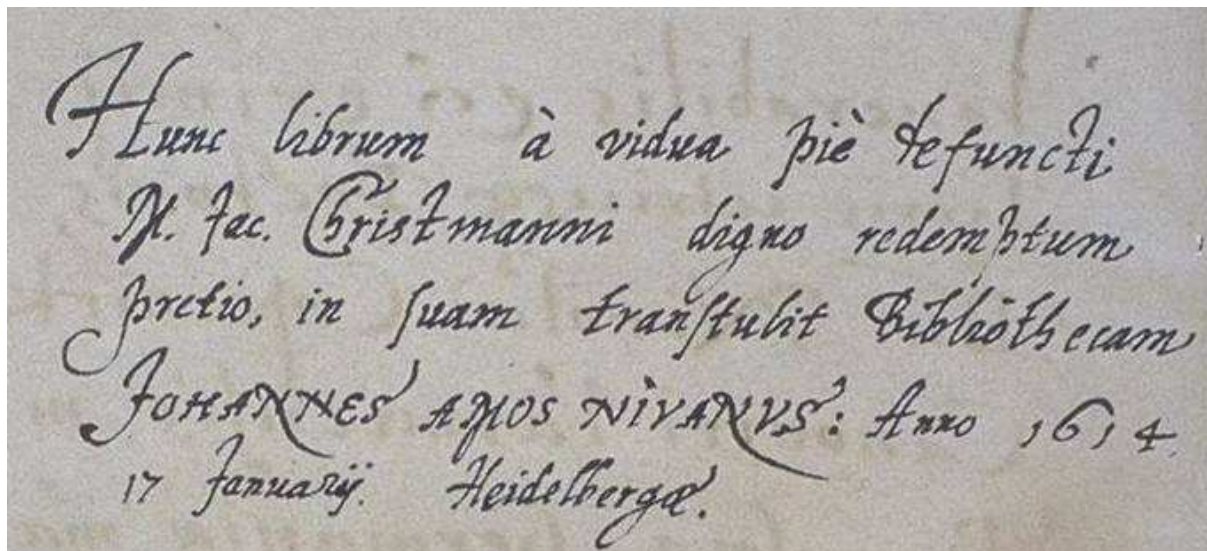 Hunc librum à vidua piè defuncti
M. Jac. Christmanni digno redemptum
pretio, in suam transtulit Bibliothecam
JOHANNES AMOS NIVANVS: Anno 1614.
17 Januarij. Heidelbergæ.